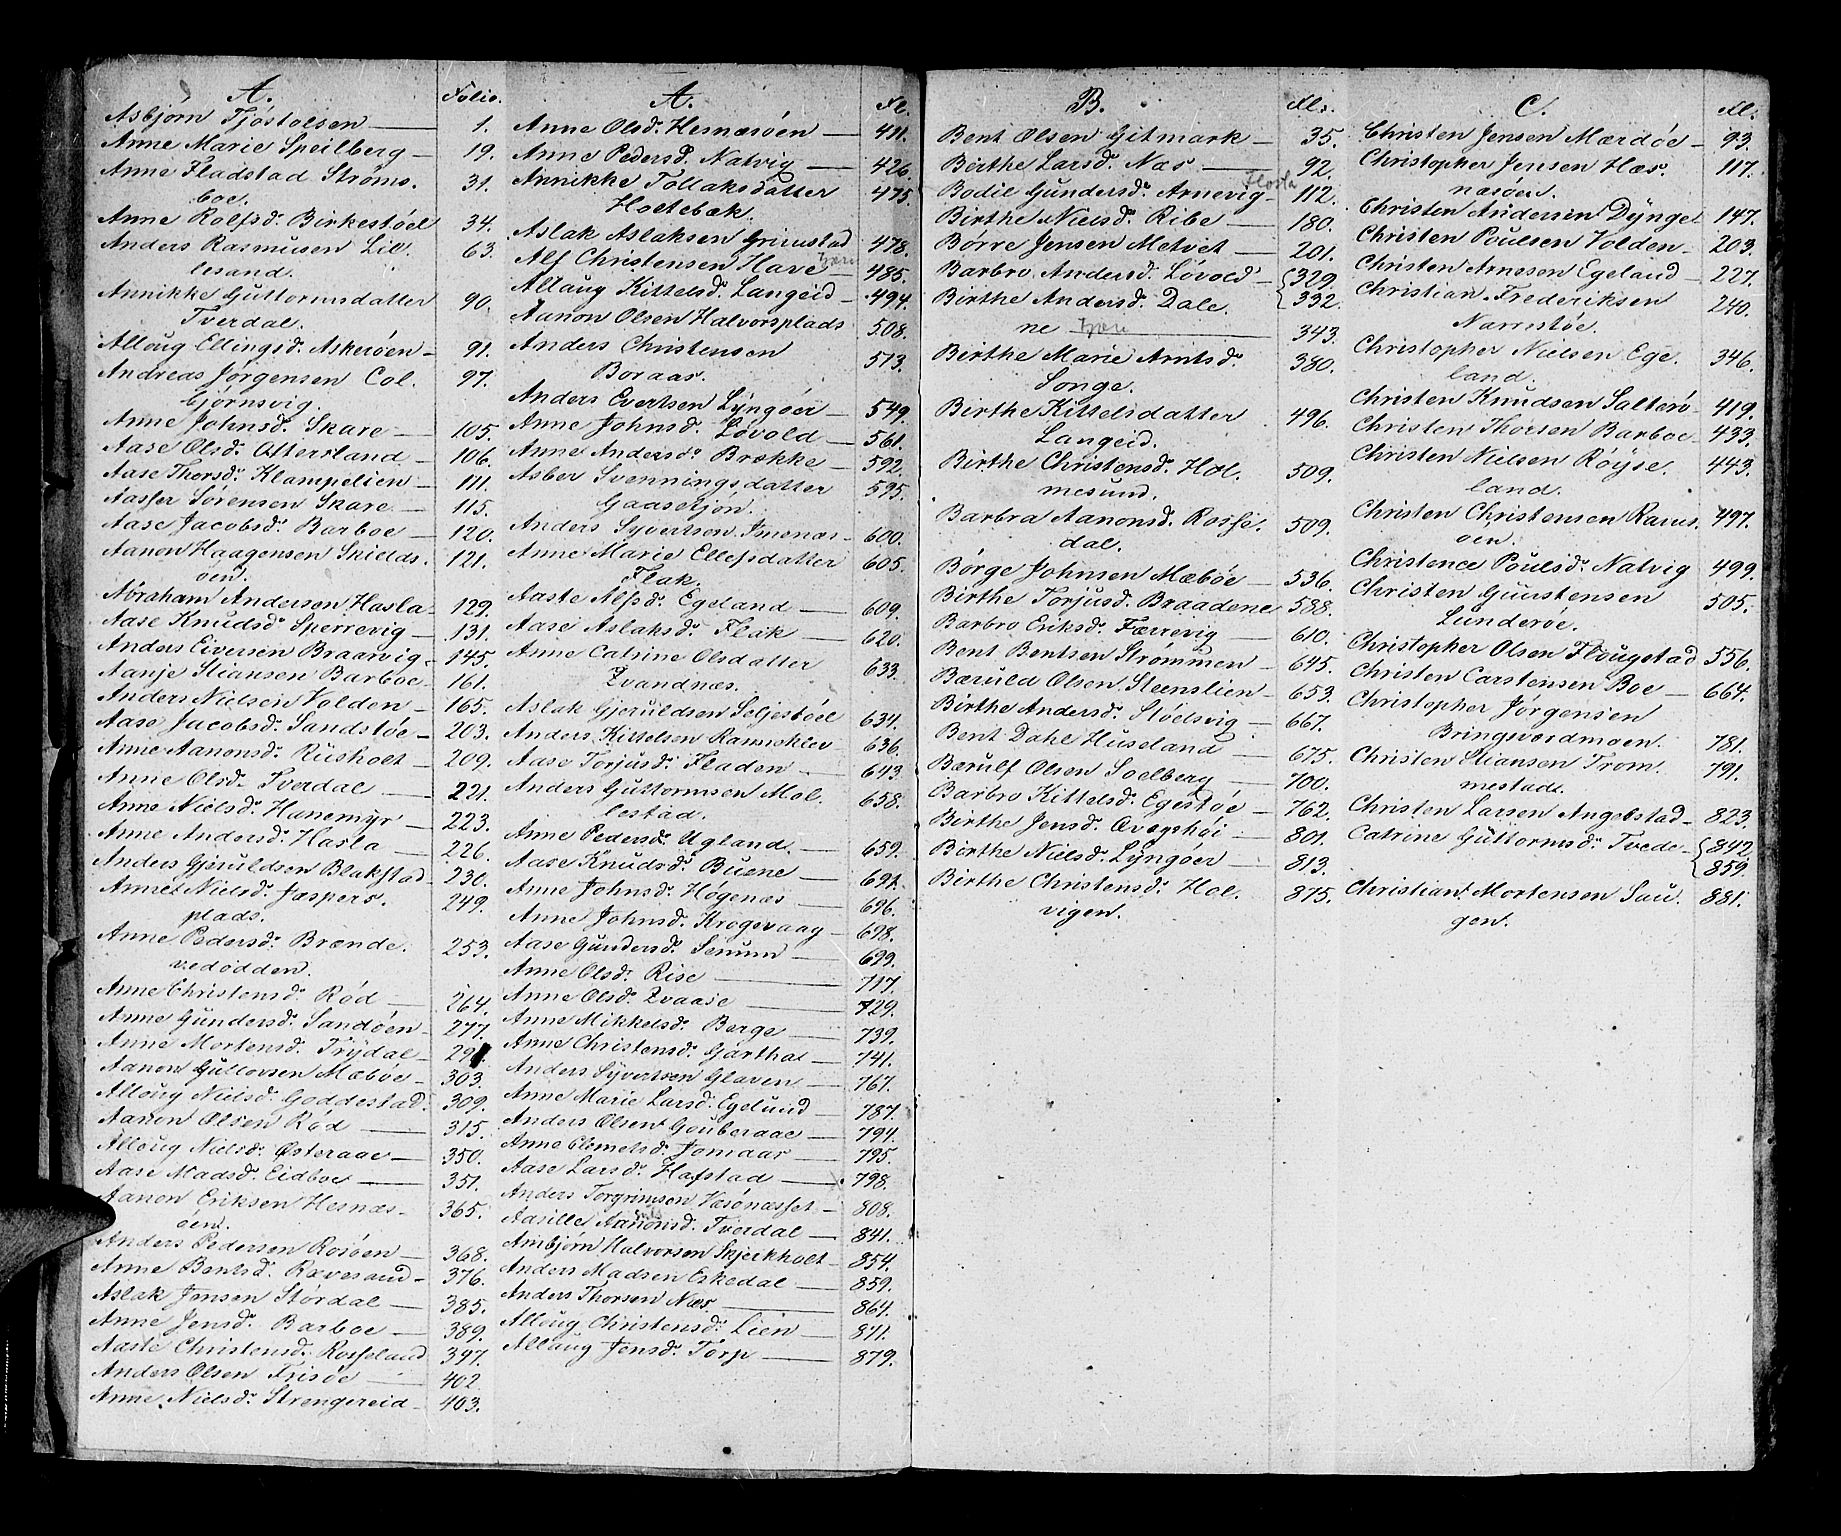 A.
Folio.
Asbjørn Tjøstolsen — 1.
Anne Marie Speilberg — 19.
Anne Fladstad Strøms- 31.
boe.
Anne Rolfsd. Birkestøel 34.
Anders Rasmusen Lil- 63.
lesand.
Annikke Guttormsdatter 90.
Tverdal.
Alloug Ellingsd. Askerøen — 91.
Andreas Jørgensen Col- 97.
bjørnsvig.
Anne Johnsd. Skare — 105.
Aase Olsd. Otterstand — 106.
Aase Thorsd. Klampelien — 111.
Aasser Sørensen Skare — 115.
Aase Jacobsd. Barboe — 120.
Aanon Haagensen Skields- 121.
øen.
Abraham Andersen Hasla 129.
Aase Knudsd. Sperrevig — 131.
Anders Eiversen Braarvig — 145.
Aanje Stiansen Barboe — 161.
Anders Nielsen Volden — 165.
Aase Jacobsd. Sandstøe — 203.
Anne Aanonsd. Riisholt — 209.
Anne Olsd. Tverdal — 221.
Anne Nielsd. Hanemyr — 223.
Anne Andersd. Hasla — 226.
Anders Gjeruldsen Blakstad 230.
Anne Nielsd. Jæspers- 249.
plads.
Anne Pedersd. Brænde- 253.
vedodden.
Anne Christensd. Rød — 264.
Anne Gundersd. Sandøen — 277.
Anne Mortensd. Trydal — 29
Aanon Guttorsen Mæbøe — 303.
Alloug Nielsd. Goddestad. 309.
Aanon Olsen Rød — 315.
Alloug Nielsd. Østeraae — 350.
Aase Madsd. Eidboe — 351.
Aanon Eriksen Hesnæs- 365.
øen.
Anders Pedersen Rosøen — 368.
Anne Bentsd. Ræversand — 376.
Aslak Jensen Størdal — 385.
Anne Jensd. Barboe — 389.
Aaste Christensd. Rosseland 397.
Anders Olsen Frisøe — 402.
Anne Nielsd. Strengereid — 403.
A.
Fl.
Anne Olsd. Hesnæsøen — 411.
Anne Pedersd. Natvig — 426.
Annikke Tollaksdatter 475.
Holtebæk.
Aslak Aslaksen Grimstad 478.
Alf Christensen Have — 485.
Allaug Kittelsd. Langeid — 494.
Aanon Olsen Halvorsplads 508.
Anders Christensen 513.
Boraas.
Anders Evertsen Lyngøer — 549.
Anne Johnsd. Løvold — 561.
Anne Andersd. Brække — 592.
Asber Svenningsdatter 595.
Gaasekjøn.
Anders Syvertsen Imenæs — 600.
Anne Marie Ellefsdatter 605.
Flak.
Aaste Alfsd. Egeland — 609.
Aase Aslaksd. Flak — 620.
Anne Catrine Olsdatter 633.
Qvandnæs.
Aslak Gjeruldsen Seljestøel 634.
Anders Kittelsen Ramskler 636.
Aase Torjusd. Fladen — 643.
Anders Guttormsen Mol- 658.
lestad.
Anne Pedersd. Ugland — 659.
Aase Knudsd. Buene — 691.
Anne Johnsd. Høgenæs — 696.
Anne Johnsd. Krogevaag — 698.
Aase Gundersd. Senum — 699.
Anne Olsd. Rise — 717.
Anne Olsd. Qvaase — 729.
Anne Mikkelsd. Berge — 739.
Anne Christensd. Garthat — 741.
Anders Syvertsen Glaven — 767.
Anne Marie Larsd. Egelund — 787.
Anders Olsen Gouberaae — 794.
Anne Clemetsd. Jomaas — 795.
Aase Larsd. Hafstad — 798.
Anders Torgrimsen Væsønæsset — 808.
Aasille Aanonsd. Tverdal — 841.
Ambjørn Halvorsen Skjerkholt — 854.
Anders Madsen Eskedal — 859.
Anders Thorsen Næs — 864.
Alloug Christensd. Lien — 871.
Allaug Jensd. Torp — 879.
B.
Fl.
Bent Olsen Gitmark — 35.
Birthe Larsd. Næs — 92.
Flosta
Bodil Gundersd. Arnevig — 112.
Birthe Nielsd. Ribe — 180.
Børre Jensen Metvet — 201.
Barbro Andersd. Løvold — {329.
Birthe Andersd. Dale- 332.
ne — 343.
Birthe Marie Arntsd. 380.
Songe.
Birthe Kittelsdatter 496.
Langeid.
Birthe Christensd. Hol- 509.
mesund.
Barbra Aanonsd. Rosse- 509.
dal.
Børge Johnsen Mæbøe — 536.
Birthe Torjusd. Braadene 588.
Barbro Eriksd. Færrevig — 610.
Bent Bentsen Strømmen — 645.
Bæruld Olsen Steenslien — 653.
Birthe Andersd. Slødsvig — 667.
Bent Dahl Huseland — 675.
Bærulf Olsen Soelberg — 700.
Barbro Kittelsd. Egestøe — 762.
Birthe Jensd. Qvægshei — 801.
Birthe Nielsd. Lyngøer — 813.
Birthe Christensd. Hol- 875.
vigen.
C.
Fl.
Christen Jensen Mærdøe — 93.
Christopher Jensen Hæs- 117.
næsøen.
Christen Andersen Dynge — 147.
Christen Poulsen Volden — 203.
Christen Arnesen Egeland — 227.
Christian Frederiksen 240.
Narrestøe.
Christopher Nielsen Ege- 346.
land.
Christen Knudsen Salterø — 419.
Christen Thorsen Barboe — 433.
Christen Nielsen Røyse- 443.
land.
Christen Christensen Ranes- 497.
øen.
Christence Poulsd. Natvig 499.
Christen Gunstensen 505.
Lunderøe.
Christopher Olsen Flougstad 556.
Christen Carstensen Boe — 664.
Christopher Jørgensen
Bringsværdmoen. 781.
Christen Stiansen Trom- 791.
mestad.
Christen Larsen Angelstad — 823.
Catrine Guttormsd. Tvede — {842.
859.
Christian Mortensen Sau- 881.
gen.